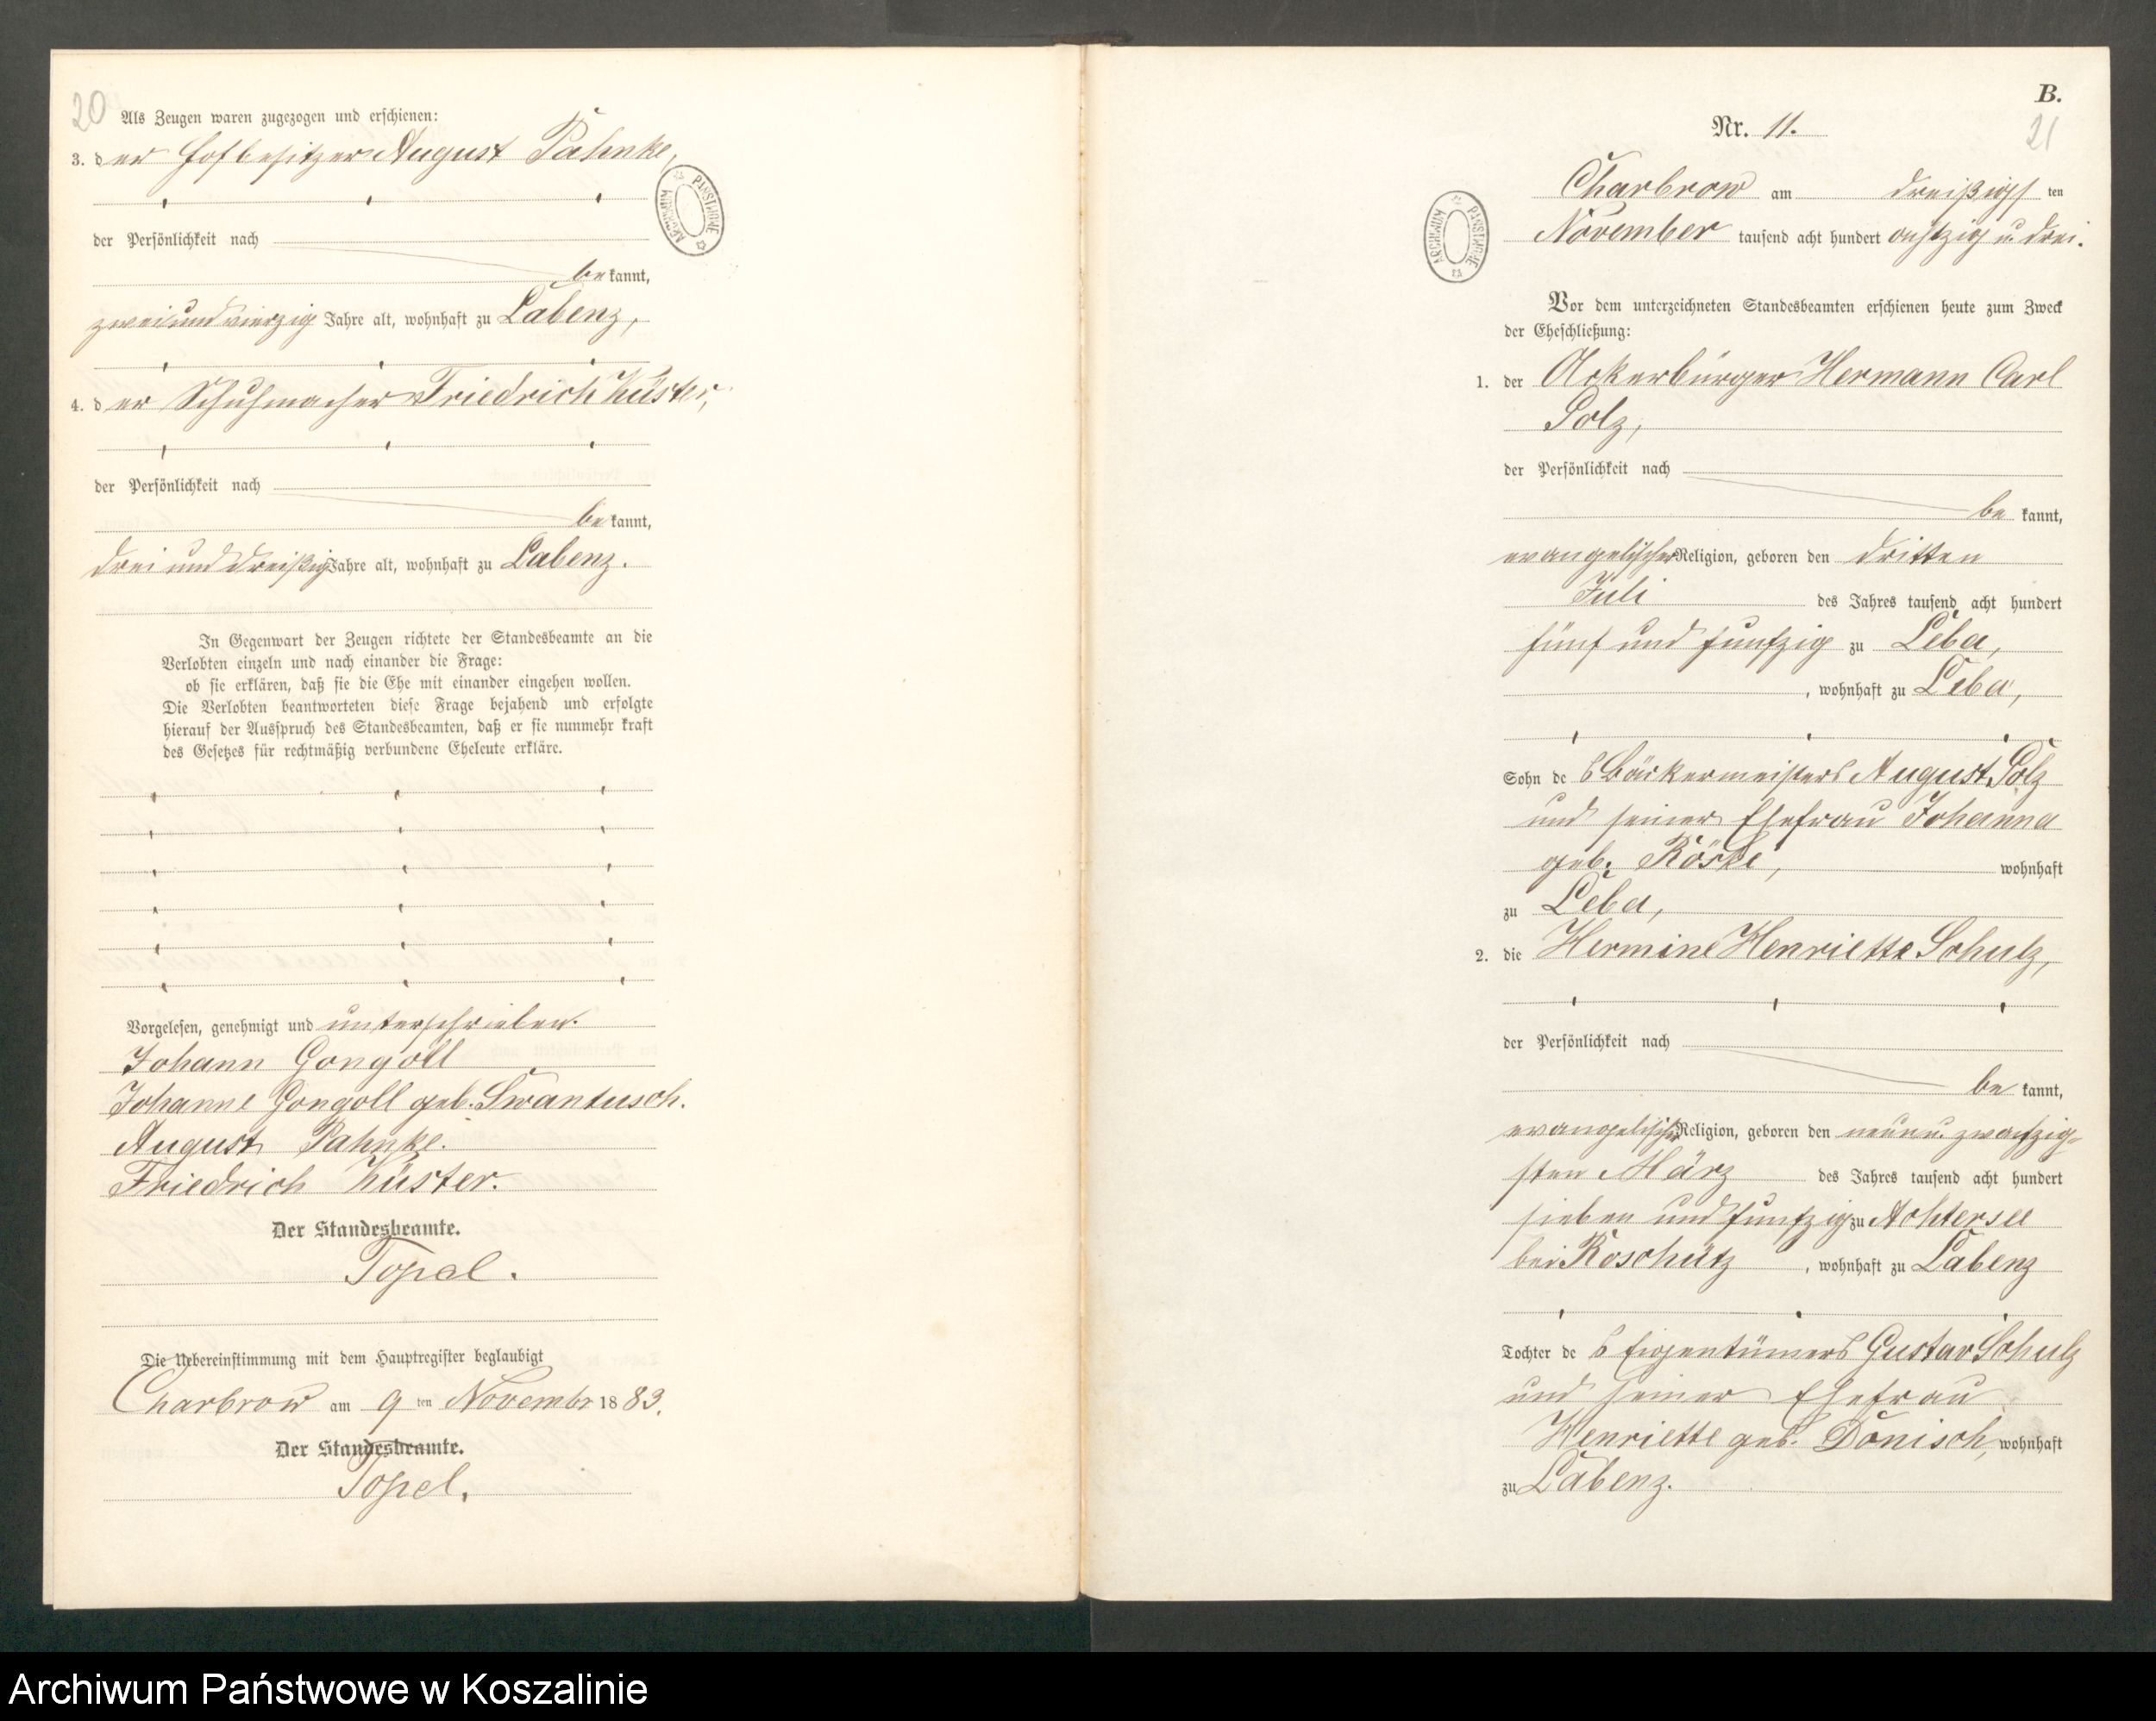 20
Als Zeugen waren zugezogen und erschienen:
3. der Hofbesitzer August Pahnke,
der Persönlichkeit nach
bekannt,
zweiundvierzig Jahre alt, wohnhaft zu Labenz,
4. der Schuhmacher Friedrich Küster,
der Persönlichkeit nach
bekannt,
drei und dreißig Jahre alt, wohnhaft zu Labenz.
In Gegenwart der Zeugen richtete der Standesbeamte an die
Verlobten einzeln und nach einander die Frage:
ob sie erklären, daß sie die Ehe mit einander eingehen wollen.
Die Verlobten beantworteten diese Frage bejahend und erfolgte
hierauf der Ausspruch des Standesbeamten, daß er sie nunmehr kraft
des Gesetzes für rechtmäßig verbundene Eheleute erkläre.
Vorgelesen, genehmigt und unterschrieben.
Johann Gongoll
Johanne Gongoll geb. Swantusch.
August Pahnke.
Friedrich Küster.
Der Standesbeamte.
Topel.
Die Uebereinstimmung mit dem Hauptregister beglaubigt
Charbrow am 9ten Novembr 1883.
Der Standesbeamte.
Topel.
ARCHIWUM PAŃSTWOWE
B.
21
Nr. 11.
Charbrow am dreißigsten
November tausend acht hundert achtzig u. drei.
ARCHIWUM PAŃSTWOWE
Vor dem unterzeichneten Standesbeamten erschienen heute zum Zweck
der Eheschließung:
1. der Ackerbürger Hermann Carl
Polz,
der Persönlichkeit nach
be kannt,
evangelischer Religion, geboren den dritten
Juli des Jahres tausend acht hundert
fünf und funfzig zu Leba,
, wohnhaft zu Leba,
Sohn des Bäckermeisters August Polz
und seiner Ehefrau Johanna
geb. Röske, wohnhaft
zu Leba,
2. die Hermine Henriette Schulz,
der Persönlichkeit nach
be kannt,
evangelischer Religion, geboren den neun u. zwanzig-
sten März des Jahres tausend acht hundert
sieben und funfzig zu Achtersee
bei Roschütz, wohnhaft zu Labenz
Tochter des Eigentümers Gustav Schulz
und seiner Ehefrau
Henriette geb. Dönisch, wohnhaft
zu Labenz.
Archiwum Państwowe w Koszalinie